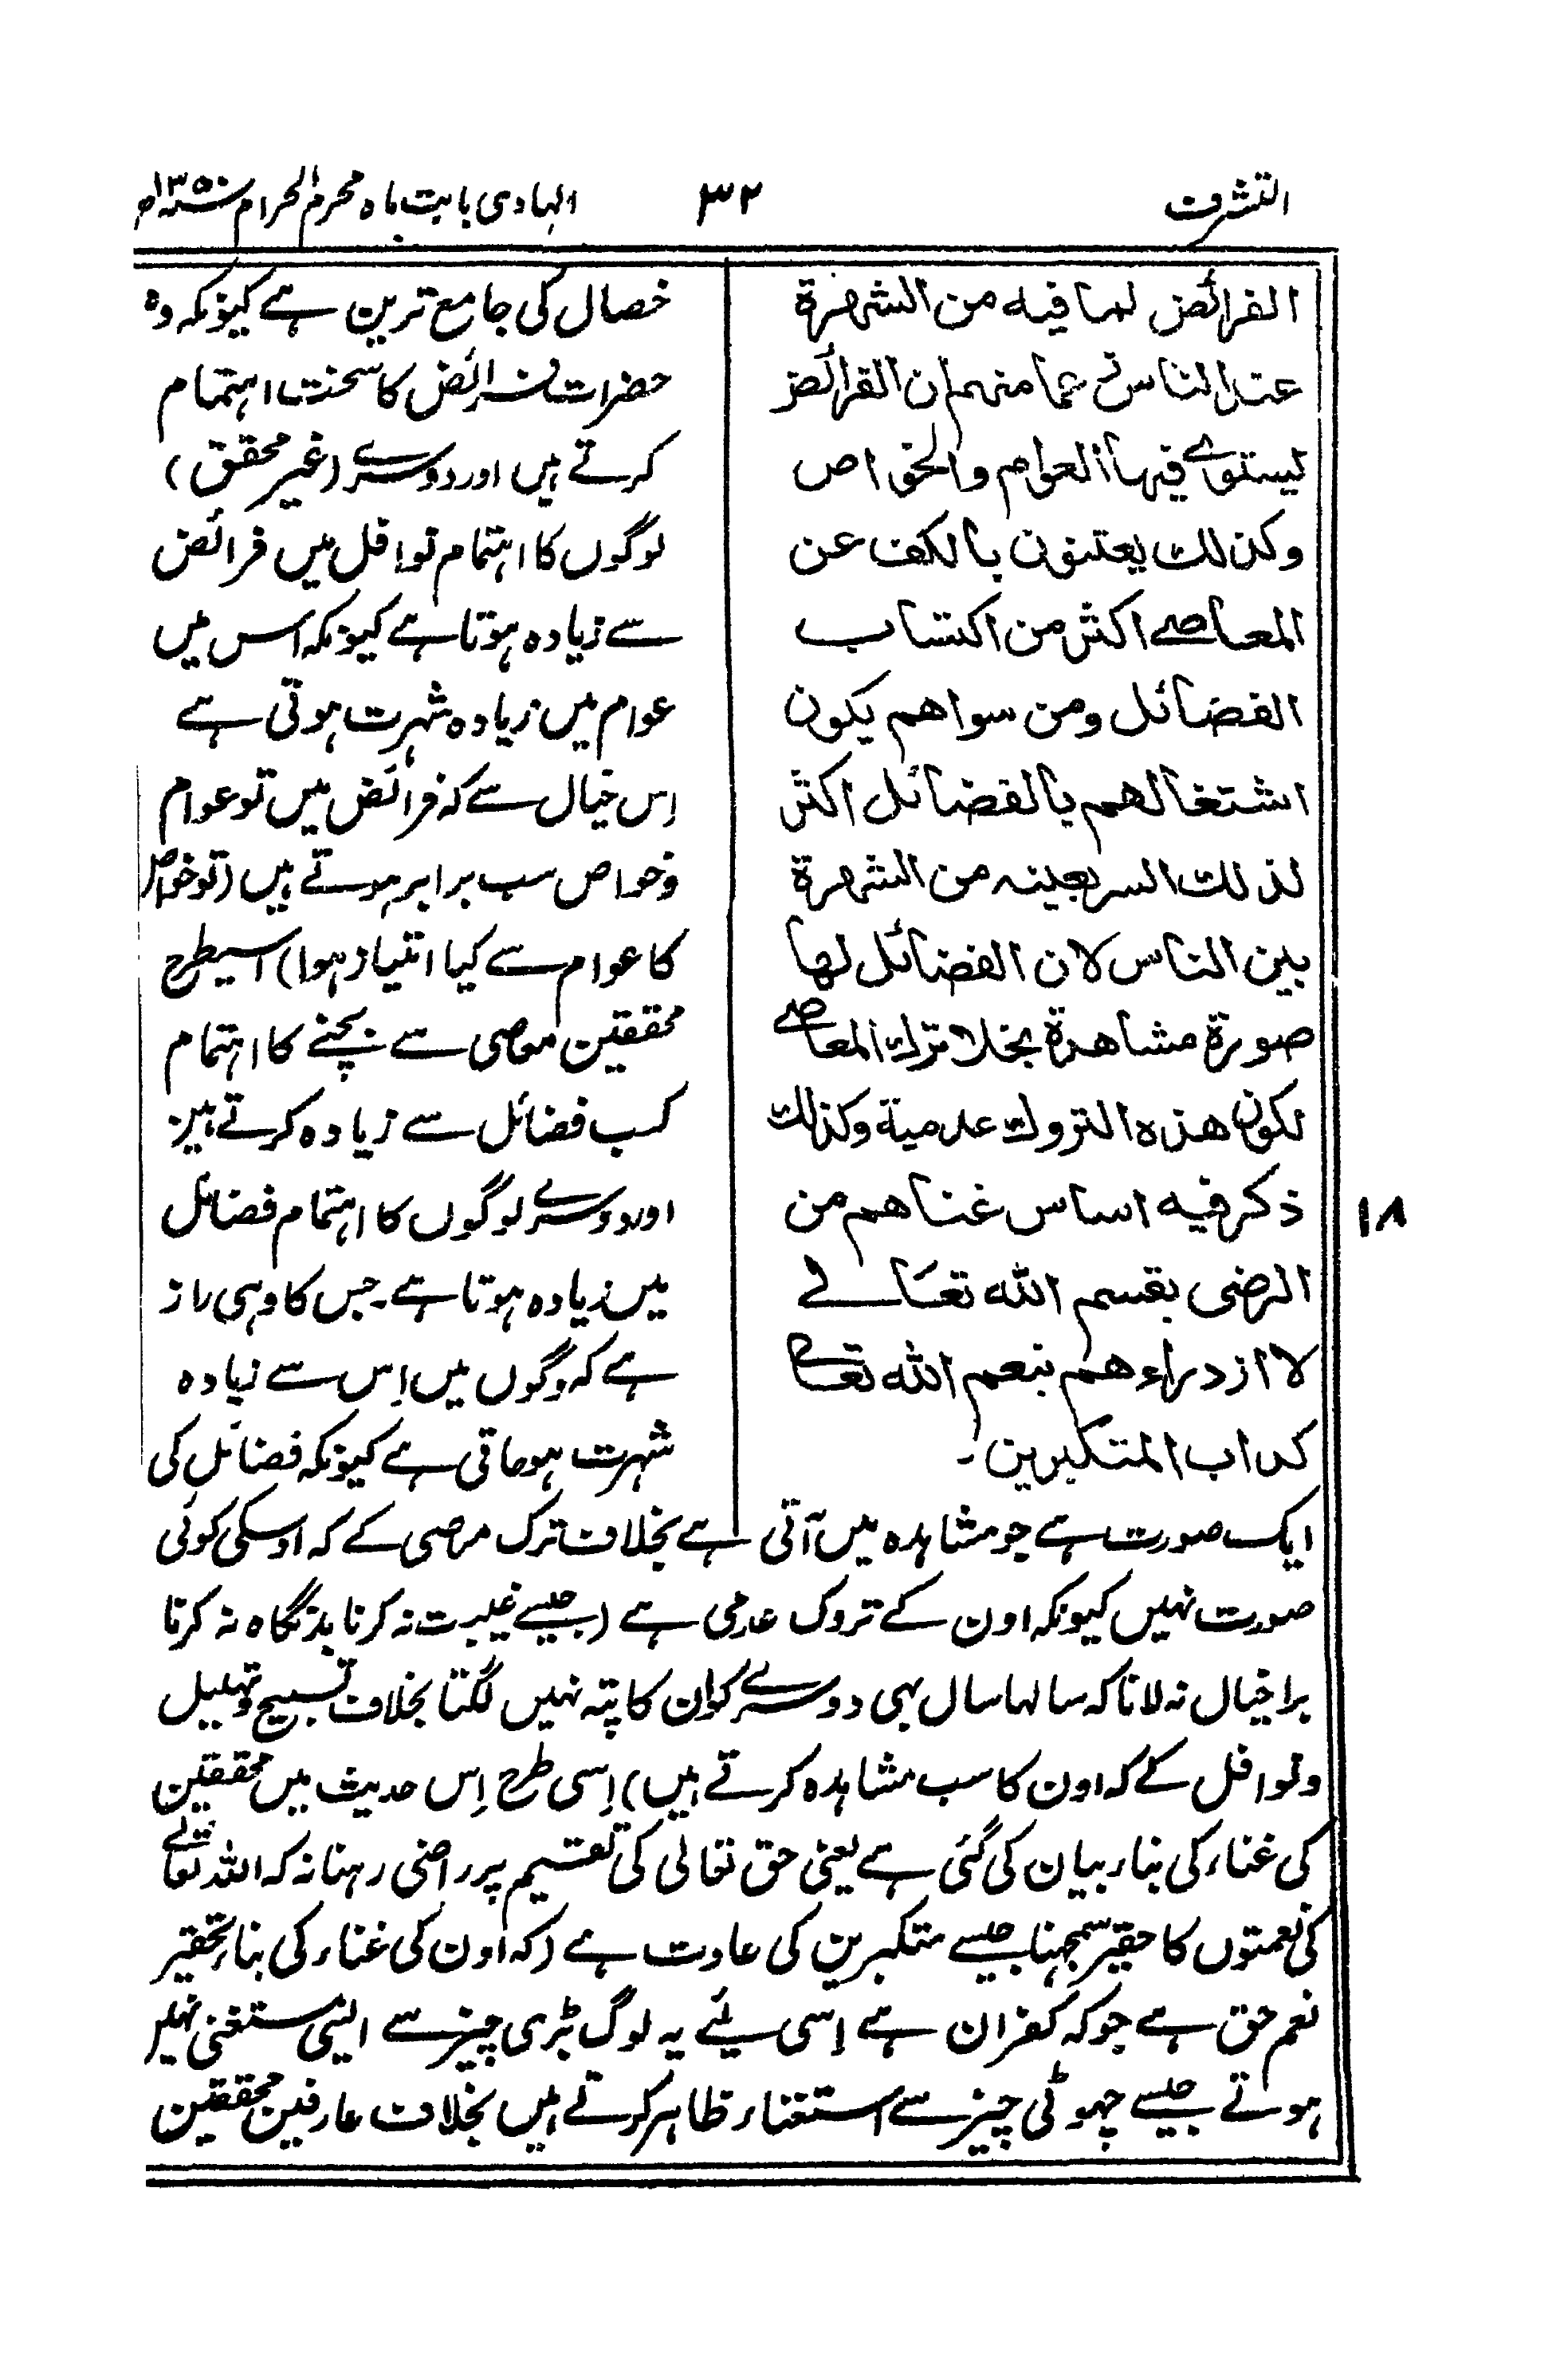 التشرف
۳۲
الہادی بابت ماہ محرم الحرام سنہ ۱۳۵۰ھ
الفرائض لما فيه من الشهرة
عند الناس زعما منهم ان الفرائض
يستوى فيها العوام والخواص
وكذلك يعتنون بالكف عن
المعاصى اكثر من اكتساب
الفضائل ومن سواهم يكون
اشتغالهم بالفضائل اكثر
لذلك السر بعينه من الشهرة
بين الناس لان الفضائل لها
صورة مشاهدة بخلاف ترك المعاصى
لكون هذه التروك عدمية وكذلك
ذكر فيه اساس غناهم من
الرضى بقسم الله تعالى
لا ازدراءهم بنعم الله تعالى
كداب المتكبرين۔
۱۸
خصال کی جامع ترین ہے کیونکہ وہ
حضرات فرائض کا سخت اہتمام
کرتے ہیں اور دوسرے (غیر محقق)
لوگوں کا اہتمام نوافل میں فرائض
سے زیادہ ہوتا ہے کیونکہ اس میں
عوام میں زیادہ شہرت ہوتی ہے
اِس خیال سے کہ فرائض میں تو عوام
وخواص سب برابر ہوتے ہیں (تو خواص
کا عوام سے کیا امتیاز ہوا) اسیطرح
محققین معاصی سے بچنے کا اہتمام
کسب فضائل سے زیادہ کرتے ہیں
اور دوسرے لوگوں کا اہتمام فضائل
میں زیادہ ہوتا ہے۔ جس کا وہی راز
ہے کہ لوگوں میں اِس سے زیادہ
شہرت ہوجاتی ہے کیونکہ فضائل کی
ایک صورت ہے جو مشاہدہ میں آتی ہے بخلاف ترک معاصی کے کہ اوسکی کوئی
صورت نہیں کیونکہ اون کے تروک عدمی ہے (جیسے غیبت نہ کرنا بدنگاہ نہ کرنا
برا خیال نہ لانا کہ سالہا سال بھی دوسرے کو ان کا پتہ نہیں لگتا بخلاف تسبیح وتہلیل
ونوافل کے کہ اون کا سب مشاہدہ کرتے ہیں) اِسی طرح اِس حدیث میں محققین
کی غناء کی بناء بیان کی گئی ہے یعنی حق تعالی کی تقسیم پر راضی رہنا نہ کہ اللہ تعالےٰ
کی نعمتوں کا حقیر سمجہنا جیسے متکبرین کی عادت ہے (کہ اون کی غناء کی بناء تحقیر
نعم حق ہے جو کہ کفران ہے اِسی لئے یہ لوگ بڑی چیز سے ایسی مستغنی نہیں
ہوتے جیسے چہوٹی چیز سے استغناء ظاہر کرتے ہیں بخلاف عارفین محققین